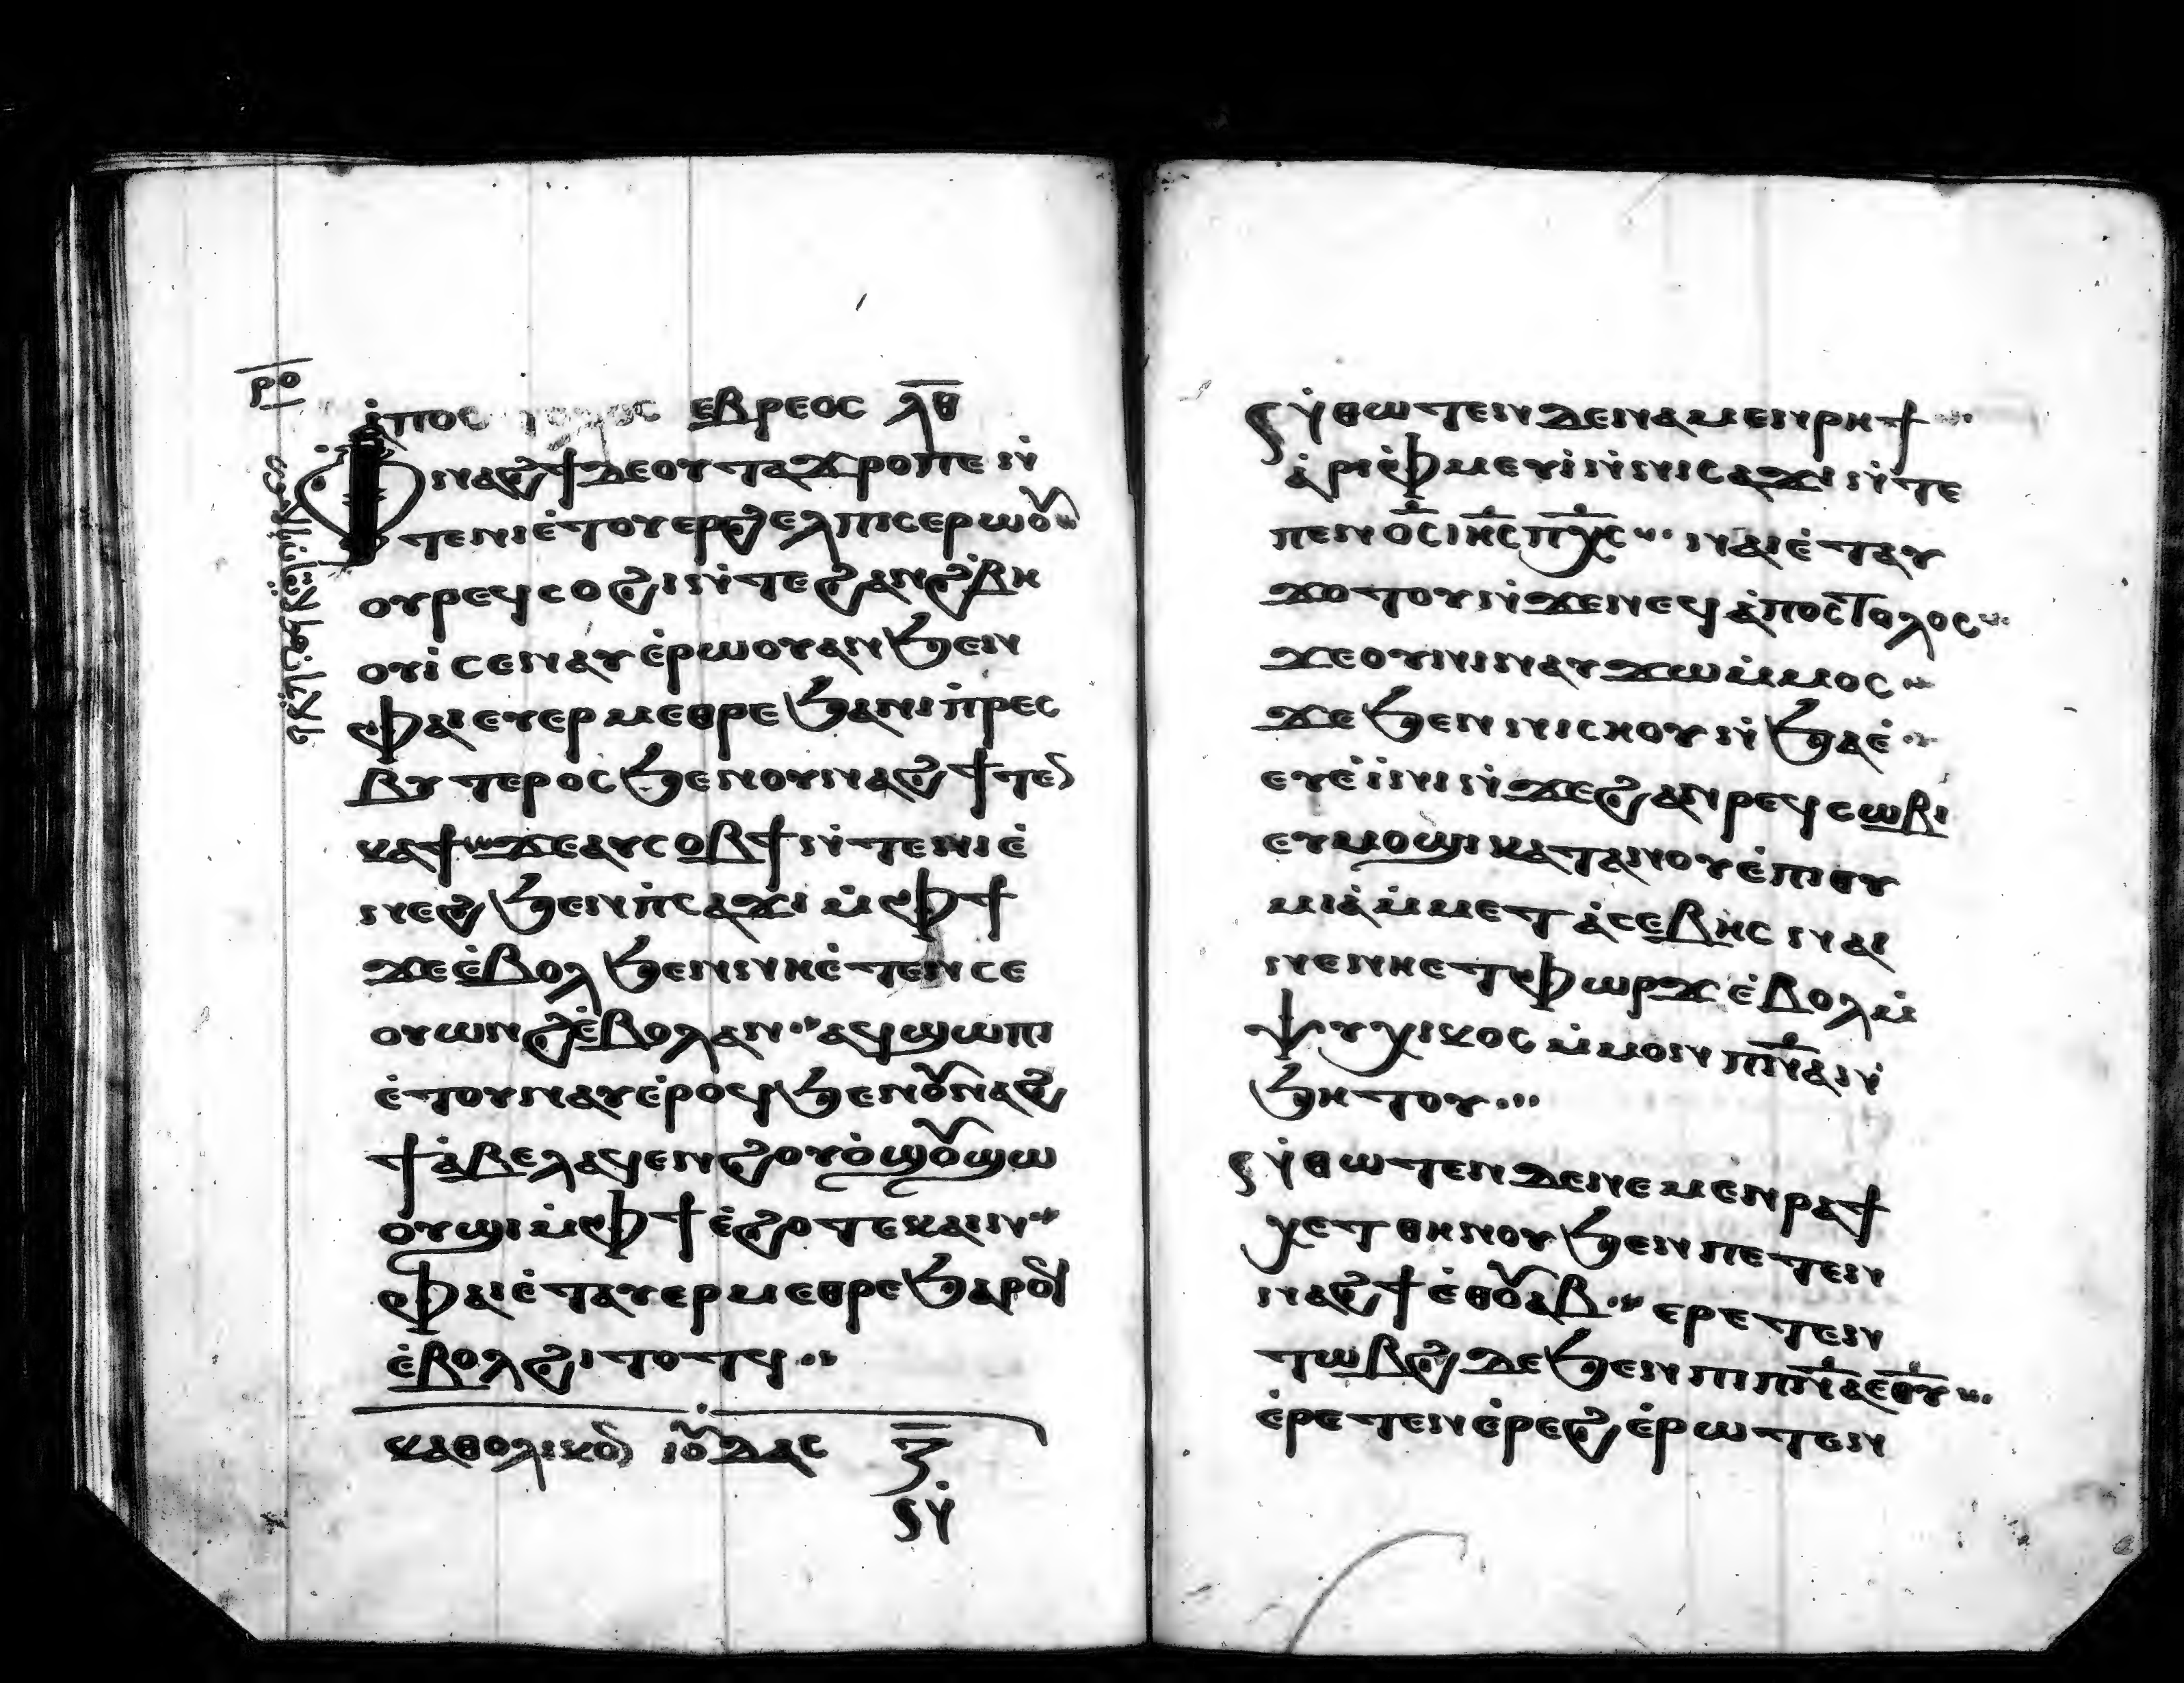 ⲣⲟ
ⲁ̇ⲡⲟⲥ ⲉⲃⲣⲉⲟⲥ ⲗⲑ
Ⲫⲛⲁϩϯ ⲇⲉ ⲟⲩⲧⲁϫⲣⲟ ⲡⲉ ⲛ̇
ⲧⲉ ⲛⲓⲉ̇ⲧⲟⲩⲉⲣϩⲉⲗⲡⲓⲥ ⲉⲣⲱⲟⲩ
ⲟⲩⲣⲉϥⲥⲟϩⲓ ⲛ̇ⲧⲉ ϩⲁⲛϩ̇ⲃⲏ
ⲟⲩⲓ̇ ⲥⲉⲛⲁⲩ ⲉ̇ⲣⲱⲟⲩ ⲁⲛ ϧⲉⲛ
ⲫⲁⲓ ⲉⲩⲉⲣⲙⲉⲑⲣⲉ ϧⲁ ⲛⲓⲡ̇ⲣⲉⲥ
ⲃⲩⲧⲉⲣⲟⲥ ϧⲉⲛ ⲟⲩⲛⲁϩϯ ⲧⲉⲛ
ⲕⲁϯ ϫⲉ ⲁⲩⲥⲟⲃϯ ⲛ̇ⲧⲉ ⲛⲓⲉ̇
ⲛⲉϩ ϧⲉⲛ ⲡ̇ⲥⲁϫⲓ ⲙ̇ⲫϯ
ϫⲉ ⲉ̇ⲃⲟⲗ ϧⲉⲛ ⲛⲏⲉ̇ⲧⲉⲛⲥⲉ
ⲟⲩⲱⲛϩ ⲉ̇ⲃⲟⲗ ⲁⲛ ⲁϥϣⲱⲡⲓ
ⲉ̇ⲧⲟⲩⲛⲁⲩ ⲉ̇ⲣⲟϥ ϧⲉⲛ ⲟⲩⲛⲁϩ
ϯ ⲁ̇ⲃⲉⲗ ⲁϥⲉⲛ ϩⲟⲩⲟ̇ ϣⲟⲩϣⲱ
ⲟⲩϣⲓ ⲙ̇ⲫϯ ⲉ̇ϩⲟⲧⲉ ⲕⲁⲓⲛ
ⲫⲁⲓ ⲉ̇ⲧⲁⲩⲉⲣⲙⲉⲑⲣⲉ ϧⲁⲣⲟϥ
ⲉ̇ⲃⲟⲗ ϩⲓⲧⲟⲧϥ
ⲕⲁⲑⲟⲗⲓⲕⲟⲛ ⲓⲟⲩⲇⲁⲥ ⲍ
ⲛ̇
ⲛ̇ⲑⲱⲧⲉⲛ ⲇⲉ ⲛⲁⲙⲉⲛⲣⲏϯ
ⲁ̇ⲣⲓⲫ̇ⲙⲉⲩⲓ̇ ⲛ̇ⲛⲓⲥⲁϫⲓ ⲛ̇ⲧⲉ
ⲡⲉⲛⲟ̅ⲥ̅ ⲓⲏ̅ⲥ̅ ⲡⲭ̅ⲥ̅ ⲛⲁⲓ ⲉ̇ⲧⲁⲩ
ϫⲟⲧⲟⲩ ⲛ̇ϫⲉ ⲛⲉϥⲁ̇ⲡⲟⲥⲧⲟⲗⲟⲥ
ϫⲉ ⲟⲩⲛⲓ ⲛⲁⲩϫⲱ ⲙ̇ⲙⲟⲥ
ϫⲉ ϧⲉⲛ ⲛⲓⲥⲏⲟⲩ ⲛ̇ϧⲁⲉ̇
ⲉⲩⲉ̇ⲓ̇ ⲛⲓ ⲛ̇ϫⲉ ϩⲁⲛⲣⲉϥⲥⲱⲃⲓ
ⲉⲩⲙⲟϣⲓ ⲕⲁⲧⲁ ⲛⲟⲩⲉ̇ⲡⲓⲑⲩ
ⲙⲓⲁ̇ ⲙ̇ⲙⲉⲧⲁ̇ⲥⲉⲃⲏⲥ ⲛⲁⲓ
ⲛⲉ ⲛⲏⲉⲧⲫⲱⲣϫ ⲉ̇ⲃⲟⲗ ⲙ̇
ⲯⲩⲭⲓⲕⲟⲥ ⲙ̇ⲙⲟⲛ ⲡⲛ̅ⲁ̅ ⲛ̇
ϧⲏⲧⲟⲩ
ⲛ̇ⲑⲱⲧⲉⲛ ⲇⲉ ⲛⲉⲙⲉⲛⲣⲁϯ
ⲭⲉⲧ ⲑⲏⲛⲟⲩ ϧⲉⲛ ⲡⲉⲧⲉⲛ
ⲛⲁϩϯ ⲉ̇ⲑⲟⲩⲁⲃ ⲉⲣⲉⲧⲉⲛ
ⲧⲱⲃϩ ⲇⲉ ϧⲉⲛ ⲡⲓⲡⲛ̅ⲁ̅ ⲉ̅ⲑ̅ⲩ̅
ⲉ̇ⲣⲉⲧⲉⲛⲉ̇ⲣⲉϩ ⲉ̇ⲣⲱⲧⲉⲛ